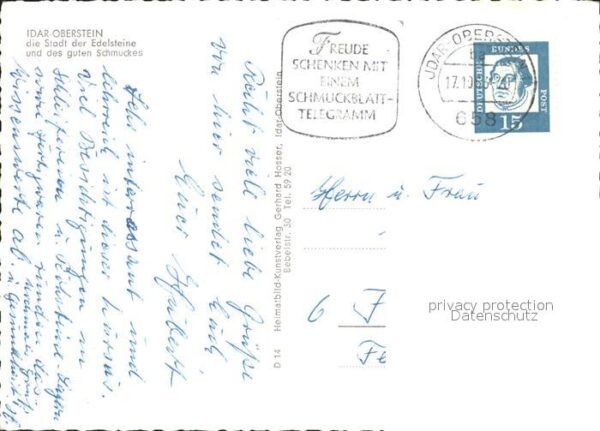 IDAR-OBERSTEIN
die Stadt der Edelsteine
und des guten Schmuckes
FREUDE
SCHENKEN MIT
EINEM
SCHMUCKBLATT-
TELEGRAMM
JDAR-OBERSTEIN
17.10
658
DEUTSCHE
BUNDES
POST
15
Recht viele liebe Grüße
von hier sendet Euch
Euer Hubert
Sehr interessant und
lehrreich ist dieser Kursus.
Viel Besichtigungen in
Schleifereien u.
runden das
Wissenswerte ab
D 14 Heimatbild-Kunstverlag Gerhard Hosser, Idar-Oberstein
Bebelstr. 30 Tel. 59 20
Herrn u. Frau
6 F
Fe
privacy protection
Datenschutz